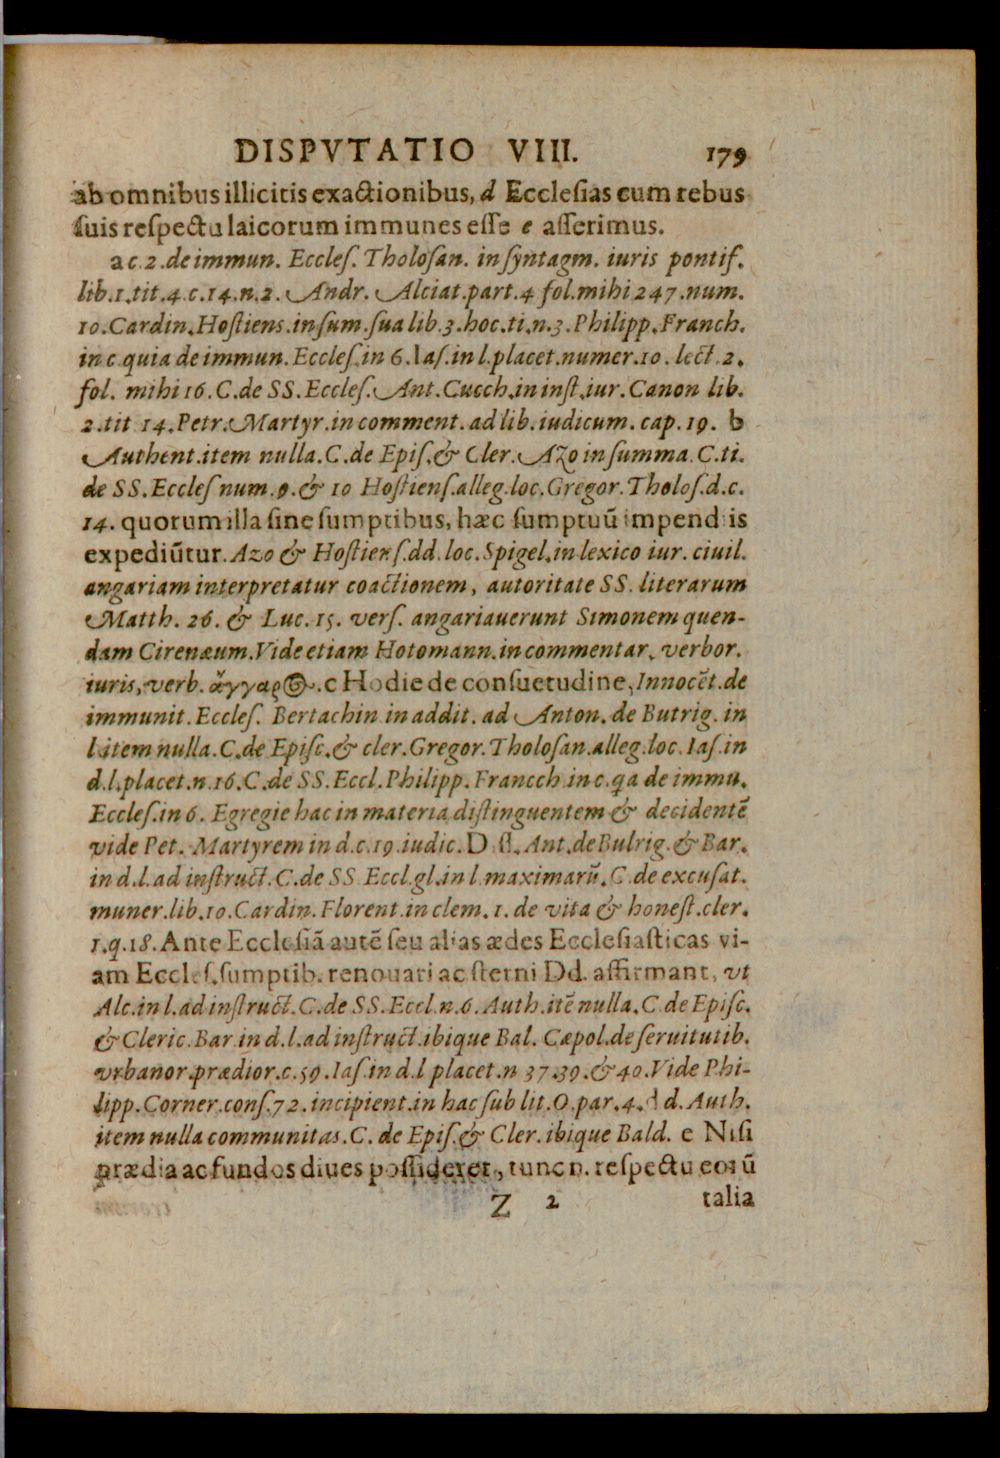 DISPVTATIO VIII. 179
ab omnibus illicitis exactionibus, d Ecclesias cum rebus
suis respectu laicorum immunes esse e asserimus.
a c.2.de immun. Eccles. Tholosan. in syntagm. iuris pontif.
lib.1.tit.4.c.14.n.2. Andr. Alciat.part.4 fol.mihi 247.num.
10.Cardin.Hostiens.in sum.sua lib.3.hoc.ti.n.3.Philipp.Franch.
in c quia de immun. Eccles.in 6.Ias.in l.placet.numer.10. lect.2.
fol. mihi 16.C.de SS.Eccles.Ant.Cucch.in inst.iur.Canon lib.
2.tit 14.Petr.Martyr.in comment. ad lib.iudicum.cap.19. b
Authent.item nulla.C.de Epis.& Cler.Azo in summa.C.ti.
de SS.Eccles num.9.& 10 Hostiens.alleg.loc.Gregor.Tholos.d.c.
14. quorum illa sine sumptibus, hæc sumptuũ impendiis
expediũtur.Azo & Hostiens.dd.loc.Spigel.in lexico iur.ciuil.
angariam interpretatur coactionem, autoritate SS. literarum
Matth. 26. & Luc. 15. vers. angariauerunt Simonem quen-
dam Cirenæum.Vide etiam Hotomann.in commentar. verbor.
iuris, verb. ἄγγαρος.c Hodie de consuetudine, Innocẽt.de
immunit.Eccles. Bertachin in addit. ad Anton. de Butrig. in
l.item nulla.C.de Episc.& cler.Gregor.Tholosan.alleg.loc.Ias.in
d.l.placet.n.16.C.de SS.Eccl.Philipp.Francch in c.qa de immu.
Eccles.in 6. Egregie hac in materia distinguentem & decidentẽ
vide Pet. Martyrem in d.c.19.iudic.D.st.Ant.de Bulrig.& Bar.
in d.l.ad instruct.C.de SS Eccl.gl.in l.maximarũ.C.de excusat.
muner.lib.10.Cardin.Florent.in clem. 1. de vita & honest.cler.
1.q.18.Ante Ecclesiã autẽ seu alias ædes Ecclesiasticas vi-
am Eccles.sumptib.renouari ac sterni Dd. affirmant, vt
Alc.in l.ad instruct.C.de SS.Eccl.n.6.Auth.itẽ nulla.C.de Episc.
& Cleric.Bar.in d.l.ad instruct.ibique Bal. Cæpol.de seruitutib.
vrbanor.prædior.c.59.Ias.in d.l placet.n 37.39.& 40.Vide Phi-
lipp.Corner.cons.72.incipient.in hac sub lit.O.par.4. d d.Auth.
item nulla communitas.C.de Epis.& Cler.ibique Bald. e Nisi
prædia ac fundos diues possideret, tunc n. respectu eorũ
Z 2 talia